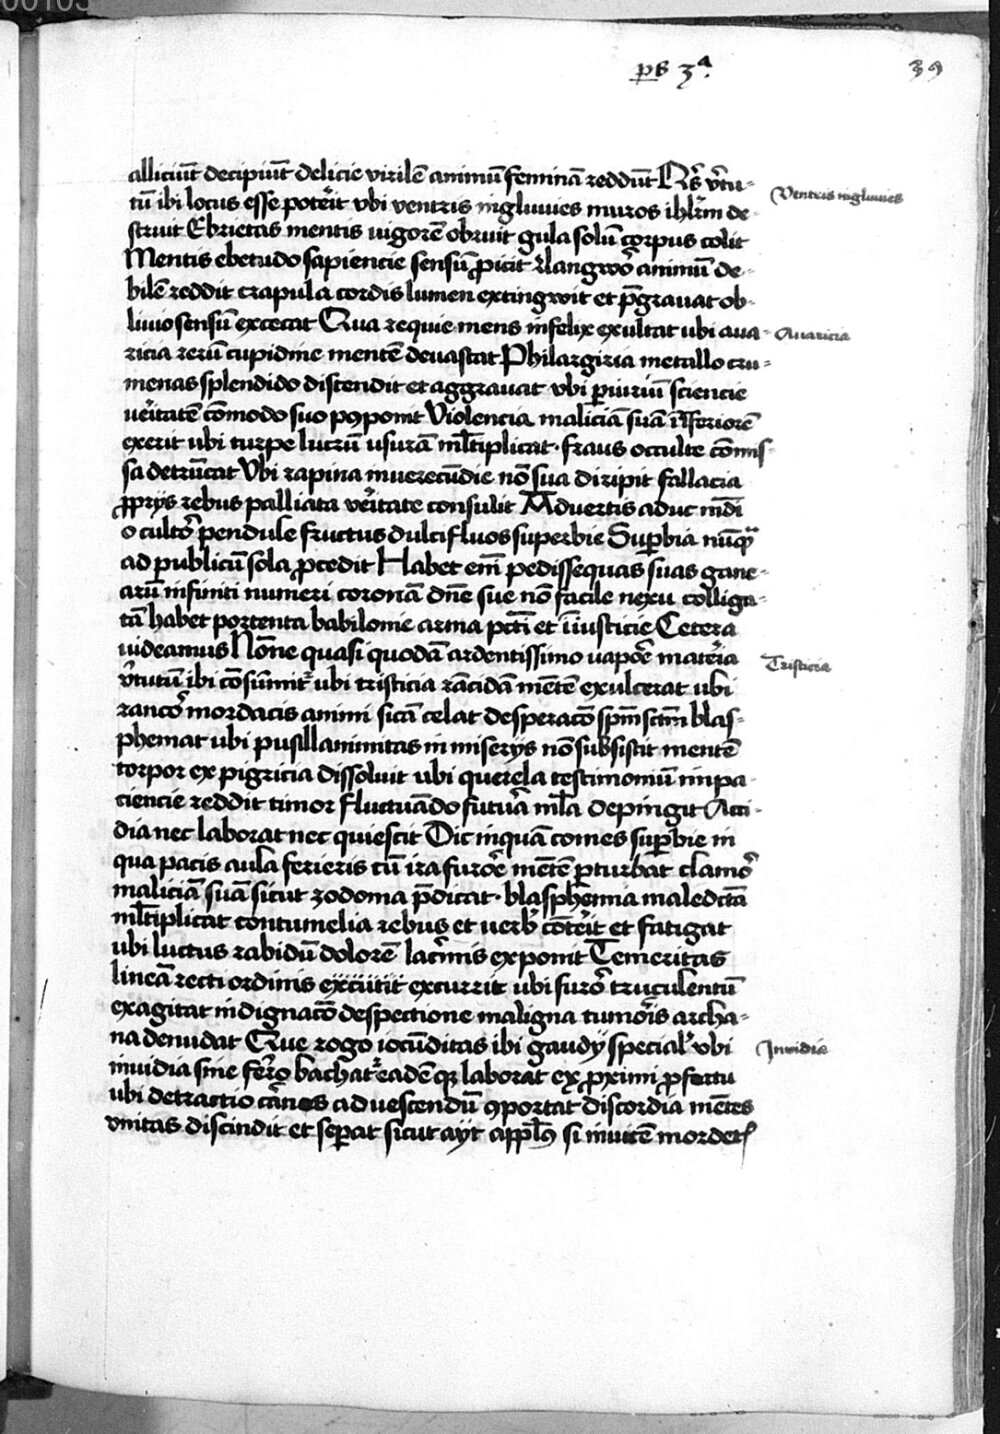 00103
ps 3ª.
39
alliciūt decipiūt delicie virilē animū feminā reddūt Qͥs v̾tu-
tū ibi locus esse potėit vbi ventris ingluuies muros ihlr̄m de-
struit Ebrietas mentis uigorē obruit gula solū corpus colit
Mentis ebetudo sapiencie sensū ꝓicit & langwō animū de-
bilē reddit crapula cordis lumen extingwit et p̄grauat ob-
liuio sensū excecat Qua requie mens infelix exultat ubi aua-
ricia rerū cupidine mentē deuastat Philargiria metallo cru-
menas splendido distendit et aggrauat vbi ꝑiuriū sciencie
ueritatē cōmodo suo pꝯponit Violencia maliciā suā ī īferiorē
exerit ubi turpe lucrū usurā ml̄tiplicat. fraus occulte cōmis-
sa detrūcat Vbi rapina inuerecūdie nō sua diripit fallacia
ꝓprijs rebus palliata ueritate consulit Aduertis aduc mūdi
o cultō pendule fructus dulcifluos superbie Suꝑbia nūqͣ
ad publicū sola ꝓcedit Habet em̄ pedissequas suas gane-
arū infiniti numeri coronā dn̄e sue nō facile nexu colliga-
tā habet portenta babilonie arma pctī et īiusticie Cetera
uideamus Nōne quasi quodā ardentissimo uapōe materia
v̾tutū ibi cōsumit᷑ ubi tristicia rācidā mētē exulcerat ubi
rancō mordacis animi sicā celat desperacō sp̄m sct̄m blas-
phemat ubi pusillanimitas in miserijs nō subsistit mentē
torpor ex pigricia dissoluit ubi querela testimoniū inpa-
ciencie reddit timor fluctuādo futura mlā depingit Acci-
dia nec laborat nec quiescit Dic inquā comes suꝑbie in
qua pacis aula ferieris cū ira furōe mētē ꝑturbat clamō
maliciā suā sicut zodoma p̄dicat. blasphemia maledcta
ml̄tiplicat contumelia rebus et uerbͥ cōteīt et fatigat
ubi luctus rabidū dolorē lacrimis exponit Temeritas
lineā recti ordinis excurrit ubi furō truculentū
exagitat indignacō despectione maligna tumoris archa-
na denudat Que rogo iocūditas ibi gaudij special᷑ vbi
inuidia sine ferro bachat᷑ eadēqꝫ laborat ex ꝓximi ꝓfectu
ubi detractio carnes ad uescendū ꝯportat discordia mētes
vnitas discindit et seꝑat sicut ayt appl̄us si inuicē mordet᷑
Ventris ingluuies
Auaricia
Tristicia
Inuidia